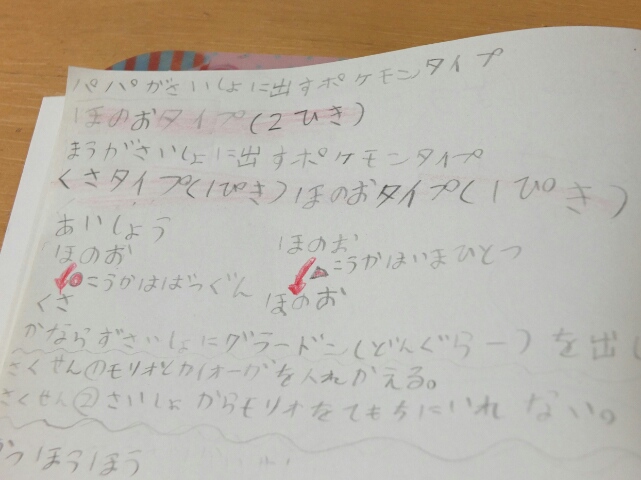 パパがさいしょに出すポケモンタイプ
ほのおタイプ(2ひき)
まうがさいしょに出すポケモンタイプ
くさタイプ(1ぴき)ほのおタイプ(1ぴき)
あいしょう
ほのお ほのお
○こうかはばつぐん △こうかはいまひとつ
くさ ほのお
かならずさいしょにグラードン(どんぐらー)を出し
さくせん①モリオとカイオーガを入れかえる。
さくせん②さいしょからモリオをてもちにいれない。
ほうほう